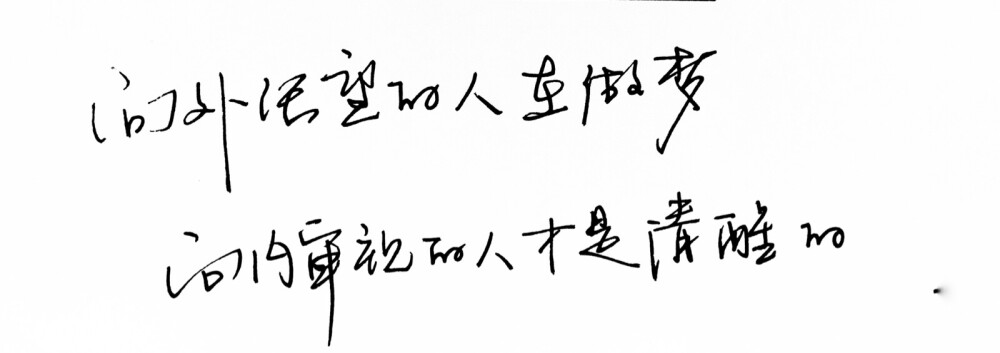 向外张望的人在做梦
向内审视的人才是清醒的